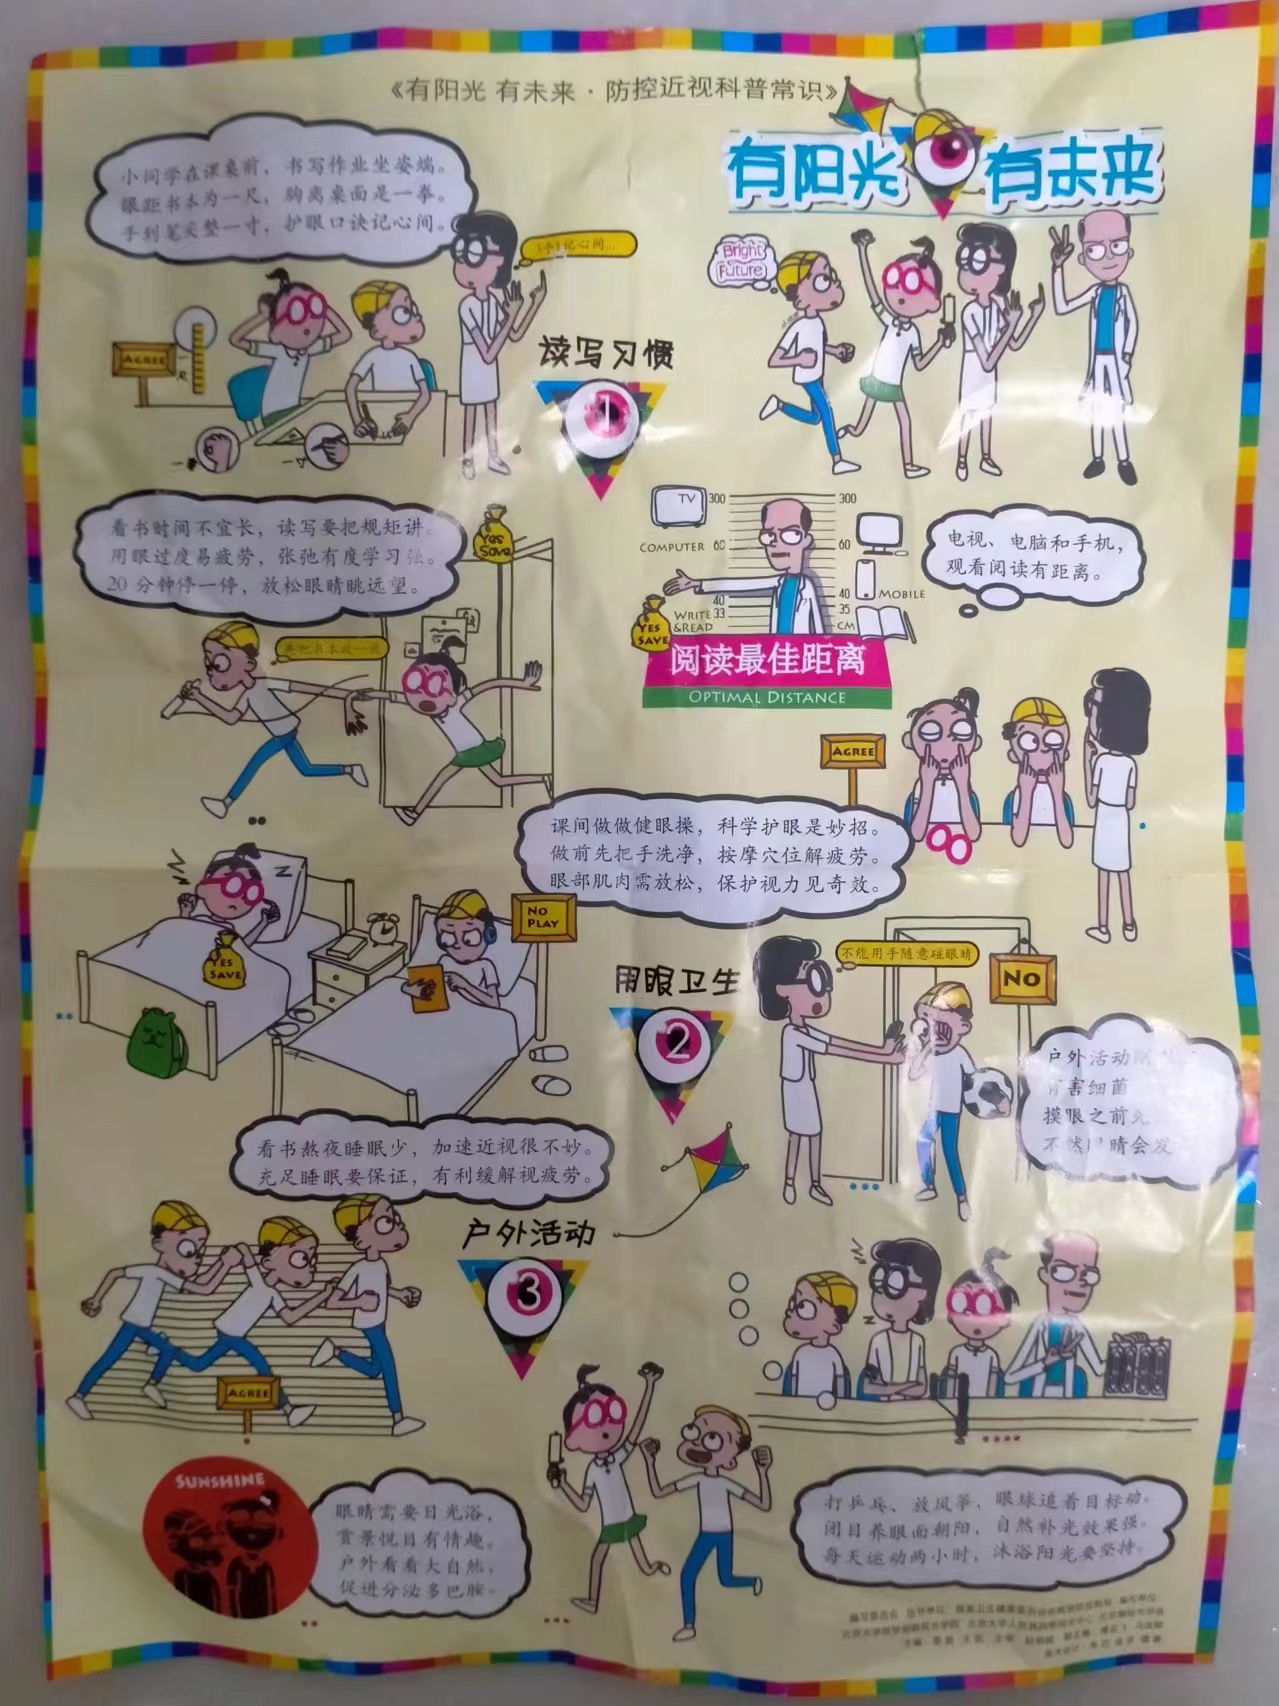 《有阳光 有未来·防控近视科普常识》
有阳光 有未来
小同学在课桌前，书写作业坐姿端。
眼距书本为一尺，胸离桌面是一拳。
手到笔尖整一寸，护眼口诀记心间。
记心间...
AGREE
一尺
读写习惯
1
Bright
Future
看书时间不宜长，读写要把规矩讲。
用眼过度易疲劳，张弛有度学习强。
20分钟停一停，放松眼睛眺远望。
YES
SAVE
先把书本放一放
TV 300 300
COMPUTER 60 60
40 40 MOBILE
WRITE 33 35
&READ CM
YES
SAVE
阅读最佳距离
OPTIMAL DISTANCE
电视、电脑和手机，
观看阅读有距离。
AGREE
课间做做健眼操，科学护眼是妙招。
做前先把手洗净，按摩穴位解疲劳。
眼部肌肉需放松，保护视力见奇效。
Z
YES
SAVE
NO
PLAY
用眼卫生
2
不能用手随意碰眼睛
NO
户外活动
有害细菌
摸眼之前先
不然眼睛会发
看书熬夜睡眠少，加速近视很不妙。
充足睡眠要保证，有利缓解视疲劳。
户外活动
3
AGREE
Z
SUNSHINE
眼睛需要日光浴，
赏景悦目有情趣。
户外看看大自然，
促进分泌多巴胺。
打乒乓、放风筝，眼球追着目标动。
闭目养眼面朝阳，自然补光效果强。
每天运动两小时，沐浴阳光要坚持。
编写委员会 指导单位： 编写单位：